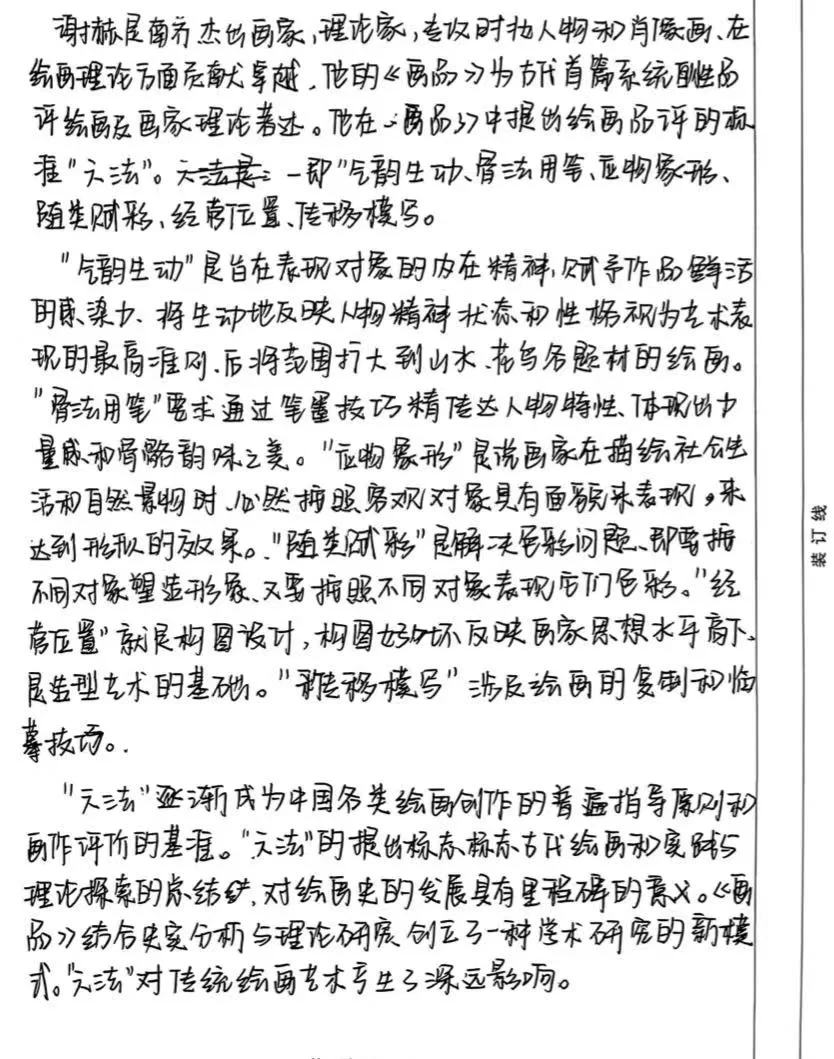 谢赫是南齐杰出画家,理论家,专攻时妆人物和肖像画、在
绘画理论方面贡献卓越,他的《画品》为古代首篇系统性品
评绘画及画家理论著述。他在《画品》中提出绘画品评的标
准"六法"。六法是:一即"气韵生动、骨法用笔、应物象形、
随类赋彩、经营位置、传移模写。
"气韵生动"是旨在表现对象的内在精神,赋予作品鲜活
的感染力、将生动地反映人物精神状态和性格视为艺术表
现的最高准则、后将范围扩大到山水、花鸟各题材的绘画。
"骨法用笔"要求通过笔墨技巧精传达人物特性、体现出力
量感和骨骼韵味之美。"应物象形"是说画家在描绘社会生
活和自然景物时、必然按照客观对象具有面貌来表现,来
达到形似的效果。"随类赋彩"是解决色彩问题、即要按
不同对象塑造形象、又要按照不同对象表现它们色彩。"经
营位置"就是构图设计,构图好坏反映画家思想水平高下、
是造型艺术的基础。"传移模写"涉及绘画的复制和临
摹技巧。
"六法"逐渐成为中国各类绘画创作的普遍指导原则和
画作评价的基准。"六法"的提出标志标志古代绘画和实践与
理论探索的总结,对绘画史的发展具有里程碑的意义。《画
品》结合史实分析与理论研究创立了一种学术研究的新模
式。"六法"对传统绘画艺术产生了深远影响。
装订线